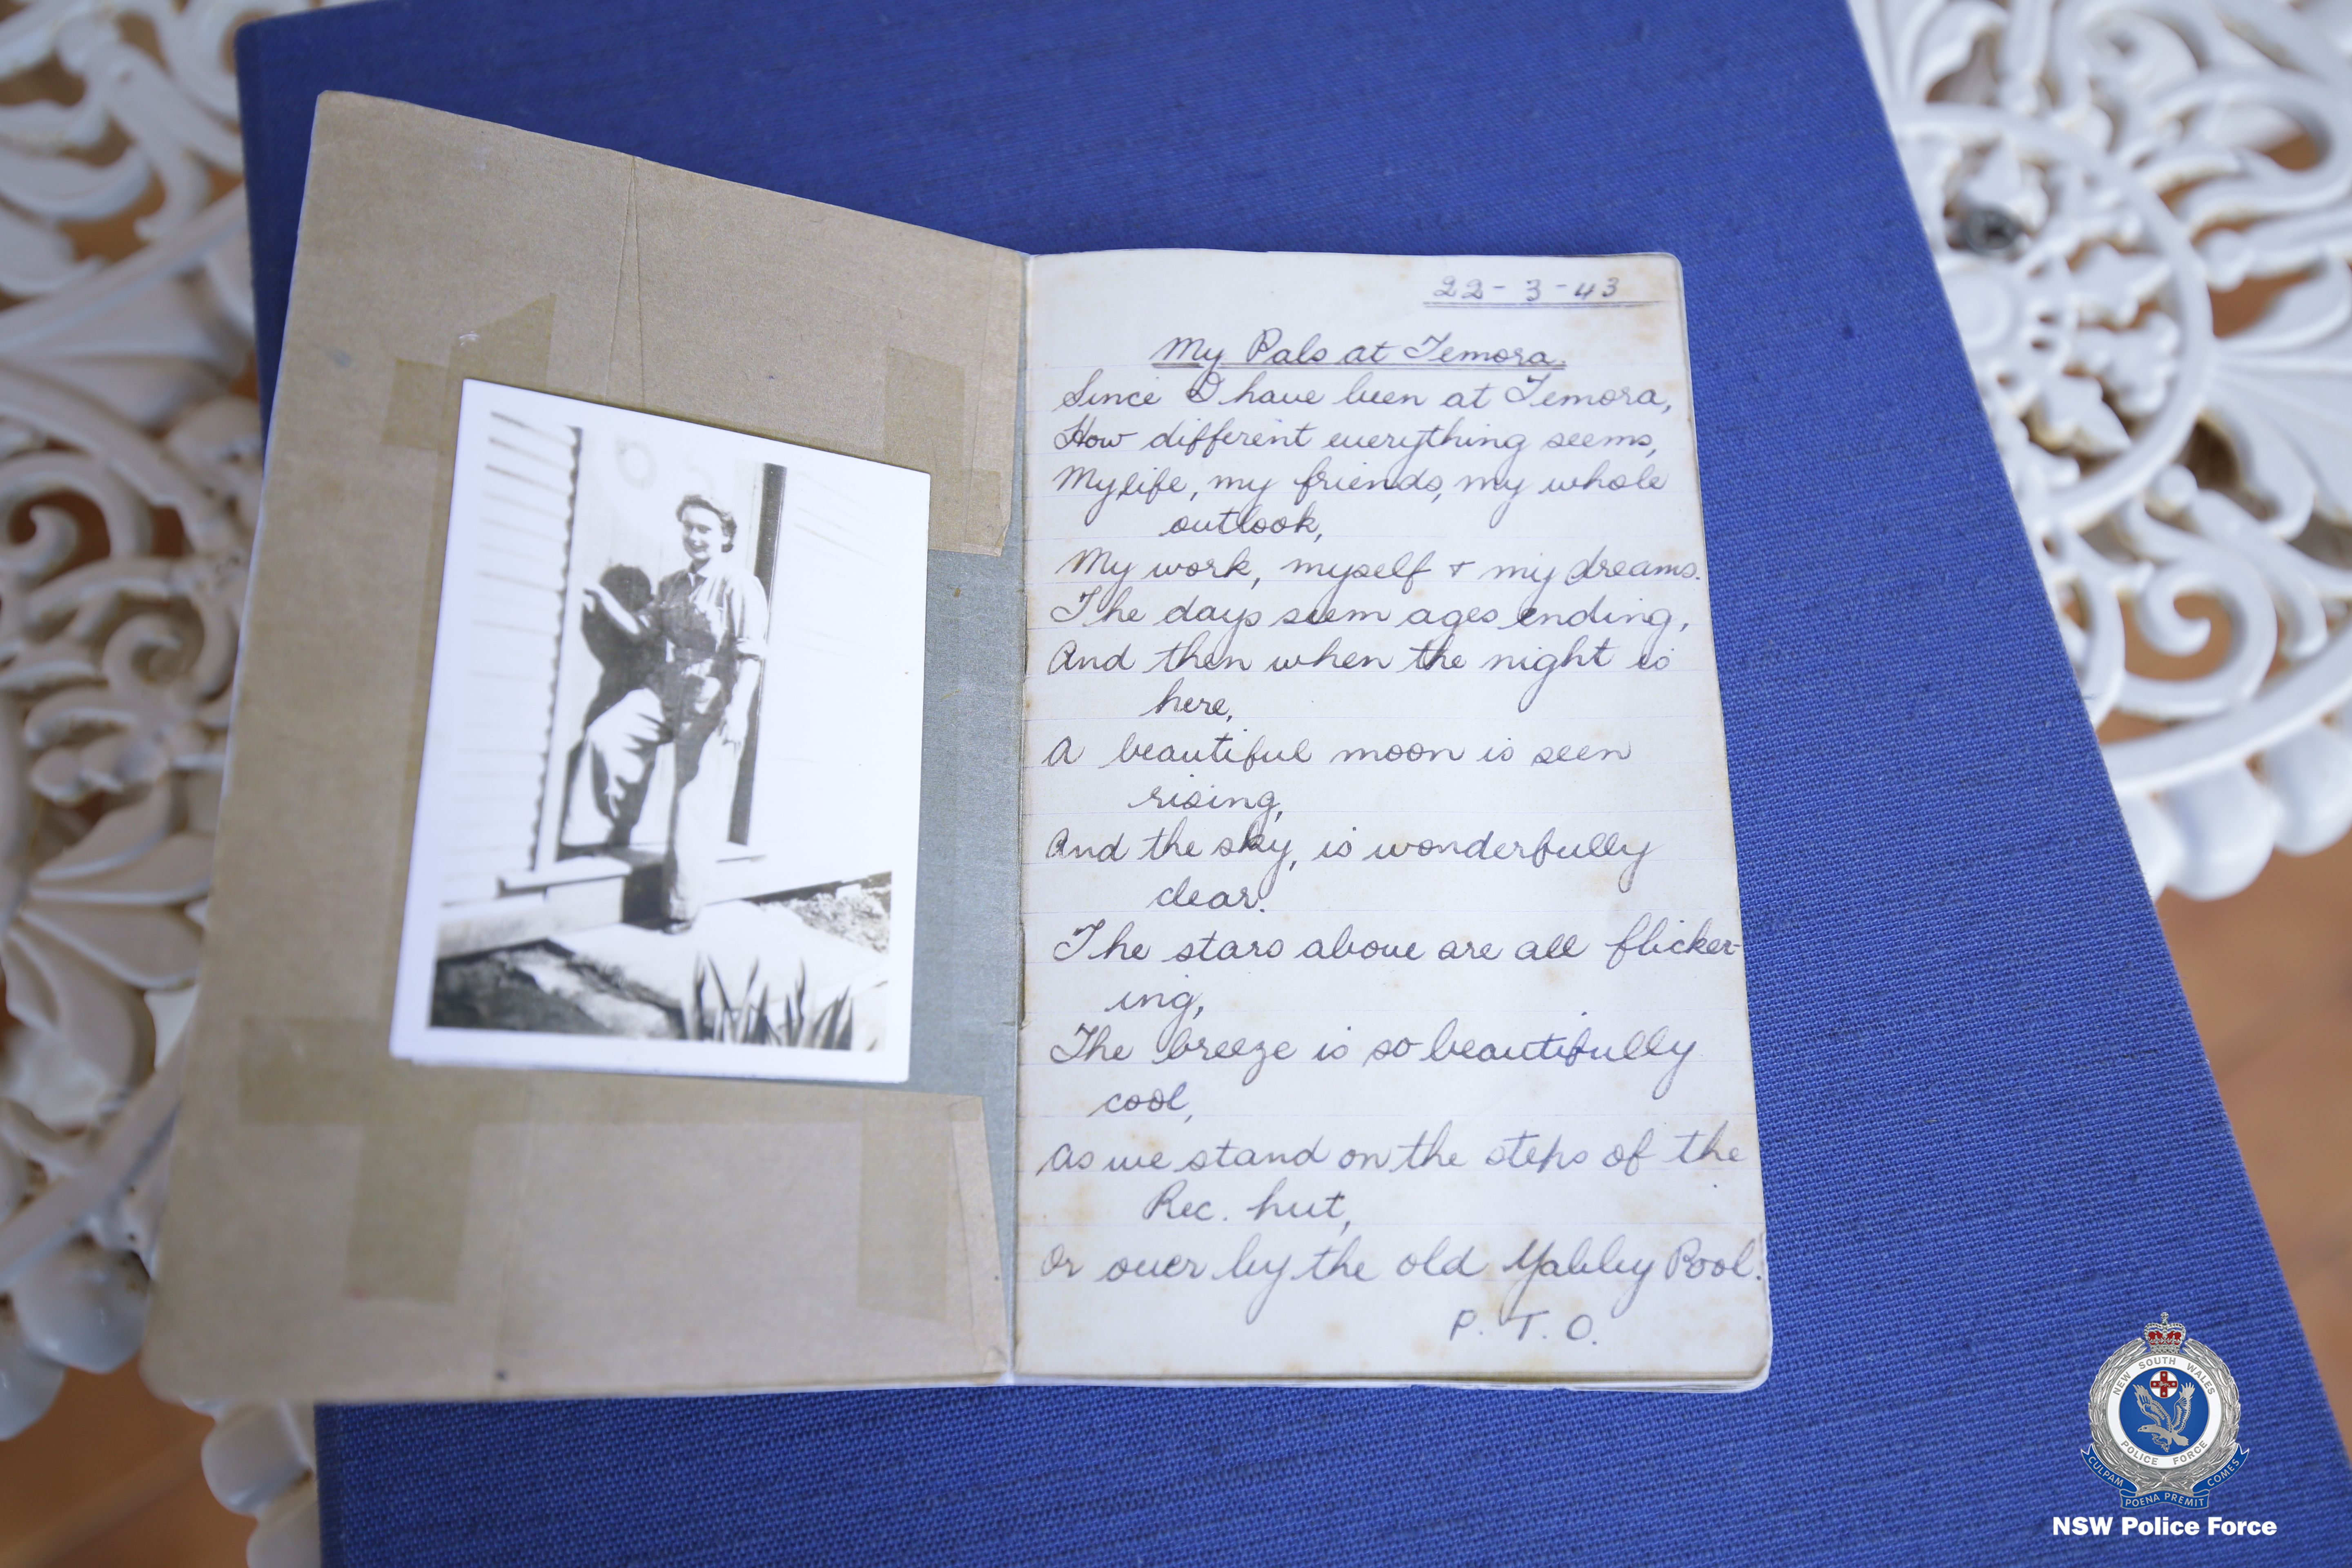 22-3-43
My Pals at Temora.
Since I have been at Temora,
How different everything seems,
My life, my friends, my whole
outlook,
My work, myself + my dreams.
The days seem ages ending,
And then when the night is
here,
A beautiful moon is seen
rising,
And the sky, is wonderfully
clear.
The stars above are all flicker-
ing,
The breeze is so beautifully
cool,
As we stand on the steps of the
Rec. hut,
Or over by the old Yabby Pool.
P. T. O.
NEW SOUTH WALES
POLICE FORCE
CULPAM POENA PREMIT COMES
NSW Police Force